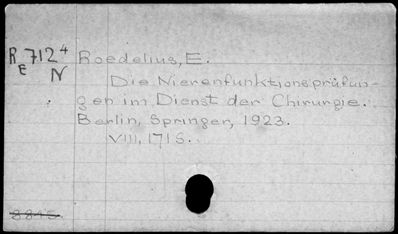 R 712⁴ Roedelius, E.
E N
Die Nierenfunktionsprüfun-
gen im Dienst der Chirurgie.
Berlin, Springer, 1923.
VIII, 171 S.
8815